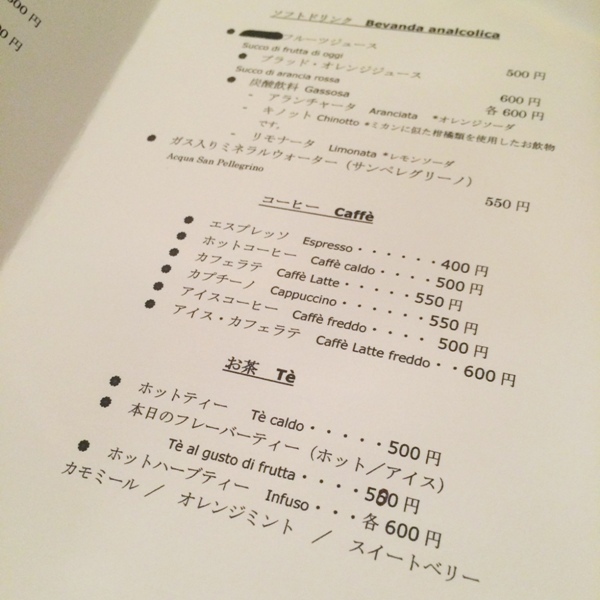 00円
00円
ソフトドリンク Bevanda analcolica
● フルーツジュース 500円
Succo di frutta di oggi
● ブラッド・オレンジジュース 600円
Succo di arancia rossa
● 炭酸飲料 Gassosa 各600円
- アランチャータ Aranciata *オレンジソーダ
- キノット Chinotto *ミカンに似た柑橘類を使用したお飲物
です。
- リモナータ Limonata *レモンソーダ
● ガス入りミネラルウォーター（サンペレグリーノ） 550円
Acqua San Pellegrino
コーヒー Caffè
● エスプレッソ Espresso・・・・・・400円
● ホットコーヒー Caffè caldo・・・・500円
● カフェラテ Caffè Latte・・・・・550円
● カプチーノ Cappuccino・・・・・550円
● アイスコーヒー Caffè freddo・・・・500円
● アイス・カフェラテ Caffè Latte freddo・・600円
お茶 Tè
● ホットティー Tè caldo・・・・・500円
● 本日のフレーバーティー（ホット／アイス）
Tè al gusto di frutta・・・・580円
● ホットハーブティー Infuso・・・各600円
カモミール ／ オレンジミント ／ スイートベリー